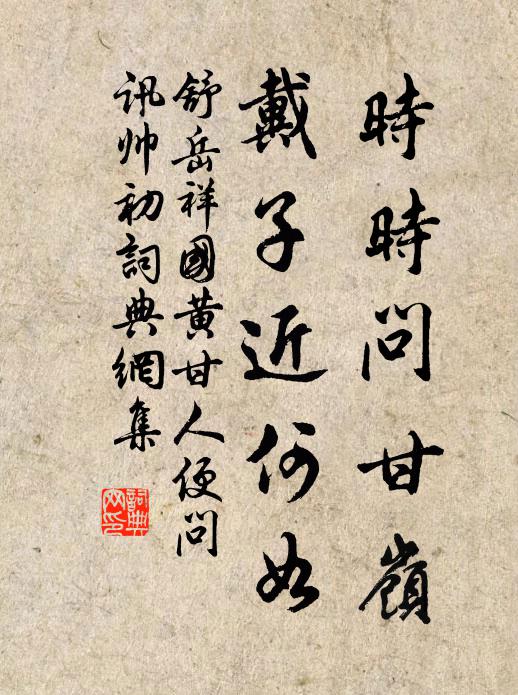 時時問甘嶺
戴子近何如
舒岳祥國黄甘人便問
訊帅初詞典網集
詞典网印